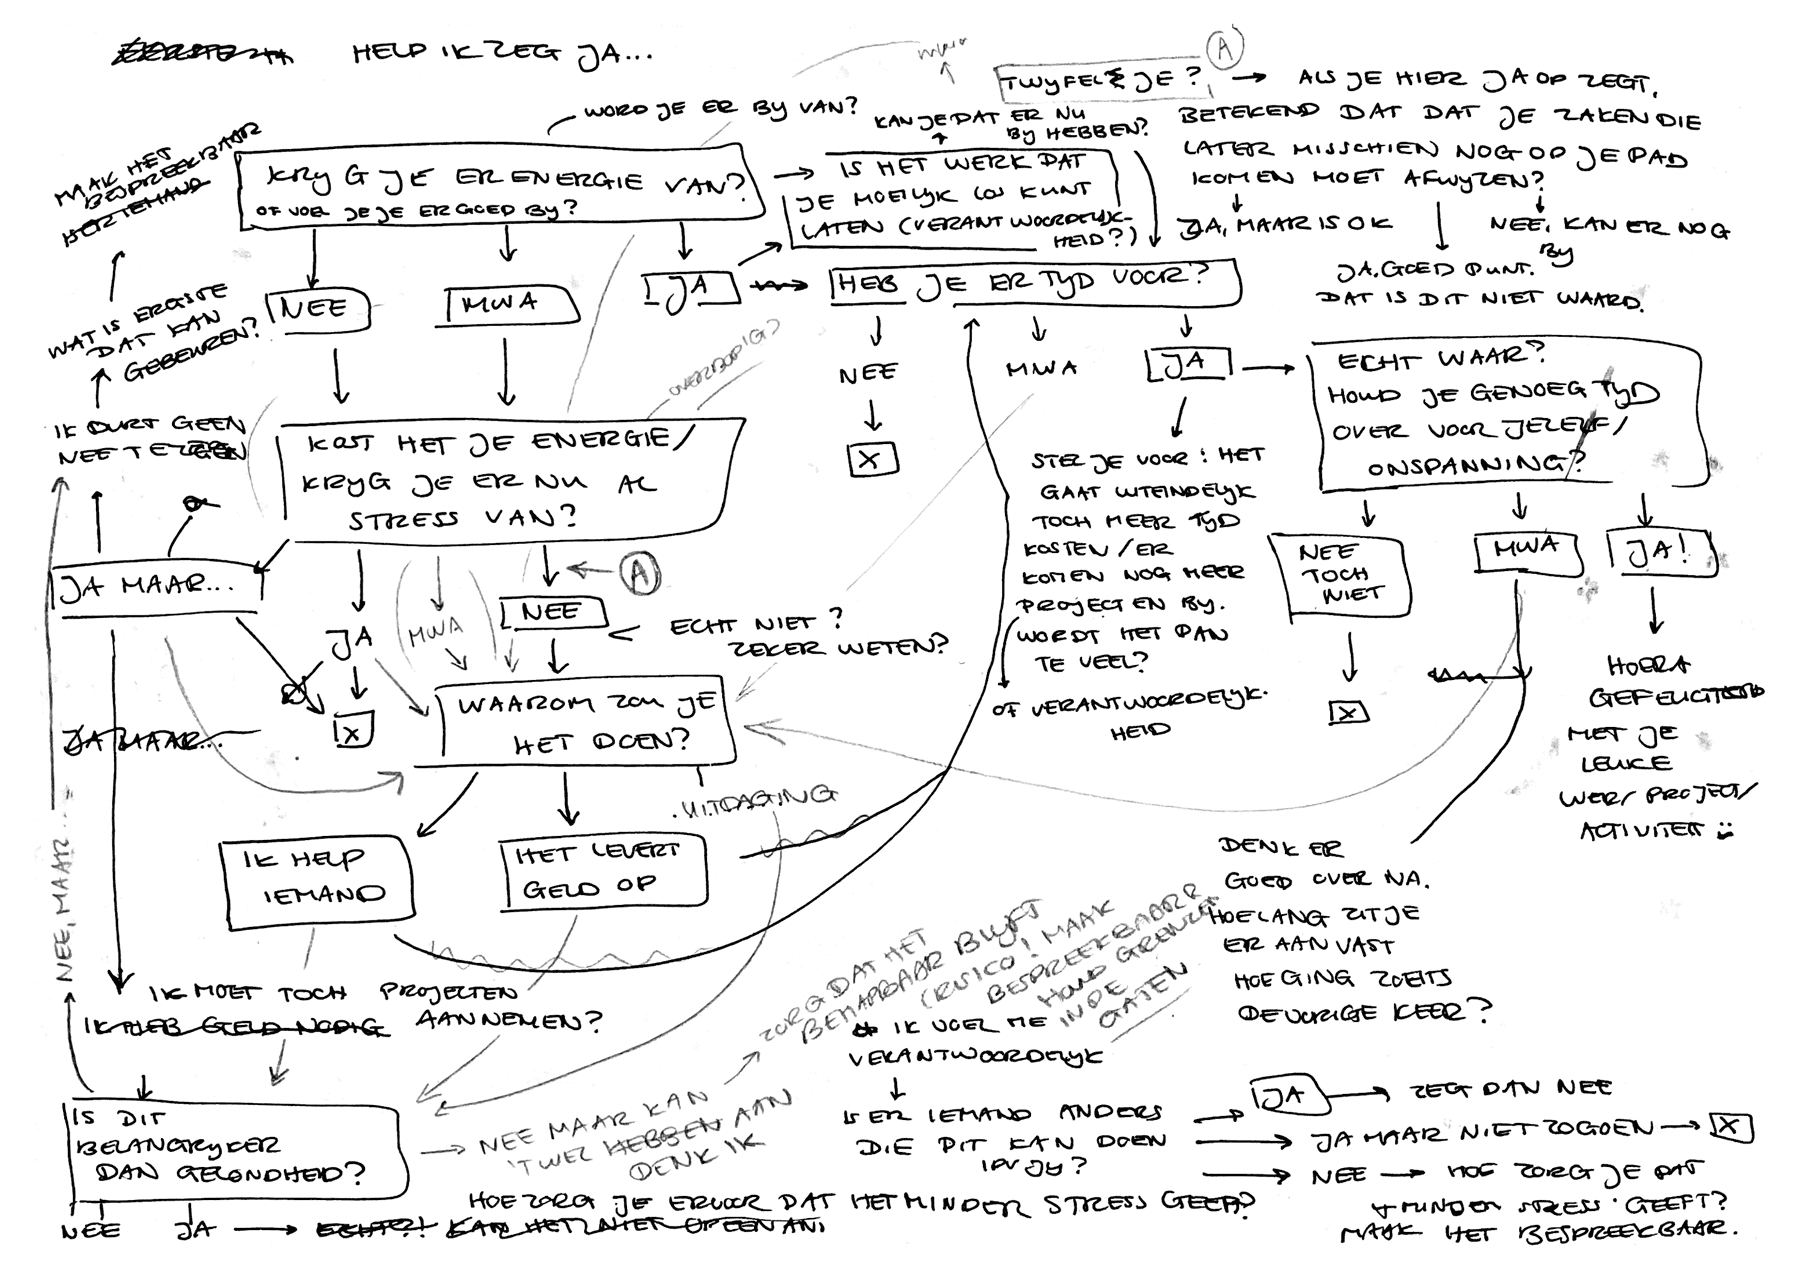 HELP IK ZEG JA...
WORD JE ER BY VAN?
MWA
TWYFEL JE?
A
ALS JE HIER JA OP ZEGT,
BETEKEND DAT DAT JE ZAKEN DIE
LATER MISSCHIEN NOG OP JE PAD
KOMEN MOET AFWYZEN?
JA, MAAR IS OK
JA. GOED PUNT.
DAT IS DIT NIET WAARD.
NEE, KAN ER NOG
BY
KAN JE DAT ER NU
BY HEBBEN?
MAAK HET
BESPREEKBAAR
KRYG JE ER ENERGIE VAN?
OF VOEL JE JE ER GOED BY?
IS HET WERK DAT
JE MOEILYK LOS KUNT
LATEN (VERANTWOORDELYK-
HEID?)
NEE
MWA
JA
HEB JE ER TYD VOOR?
WAT IS ERGSTE
DAT KAN
GEBEUREN?
OVERBODIG?
NEE
X
MWA
JA
ECHT WAAR?
HOUD JE GENOEG TYD
OVER VOOR JEZELF/
ONSPANNING?
IK DURF GEEN
NEE TE ZEGGEN
KOST HET JE ENERGIE/
KRYG JE ER NU AL
STRESS VAN?
STEL JE VOOR: HET
GAAT UITEINDELYK
TOCH MEER TYD
KOSTEN/ER
KOMEN NOG MEER
PROJECTEN BY.
WORDT HET DAN
TE VEEL?
OF VERANTWOORDELYK-
HEID
NEE
TOCH
NIET
X
MWA
JA!
HOERA
GEFELICITEERD
MET JE
LEUKE
WERK/PROJECT/
ACTIVITEIT
JA MAAR...
JA
MWA
A
NEE
ECHT NIET?
ZEKER WETEN?
X
JA MAAR...
WAAROM ZOU JE
HET DOEN?
UITDAGING
IK HELP
IEMAND
HET LEVERT
GELD OP
NEE, MAAR...
DENK ER
GOED OVER NA.
HOELANG ZIT JE
ER AAN VAST
HOE GING ZOIETS
DE VORIGE KEER?
ZORG DAT HET
BEHAPBAAR BLYFT
(RISICO! MAAK
BESPREEKBAAR
HOUD GRENZEN
IN DE
GATEN
IK MOET TOCH PROJECTEN
AANNEMEN?
IK HEB GELD NODIG
IK VOEL ME
VERANTWOORDELYK
IS DIT
BELANGRYKER
DAN GEZONDHEID?
NEE MAAR KAN
'T WEL HEBBEN AAN
DENK IK
IS ER IEMAND ANDERS
DIE DIT KAN DOEN
IPV JY?
JA
ZEGT DAN NEE
JA MAAR NIET ZO GOED
X
NEE
HOE ZORG JE DAT
MINDER STRESS GEEFT?
MAAK HET BESPREEKBAAR.
HOE ZORG JE ERVOOR DAT HET MINDER STRESS GEEFT?
NEE
JA
KAN HET NIET OPEENS AN